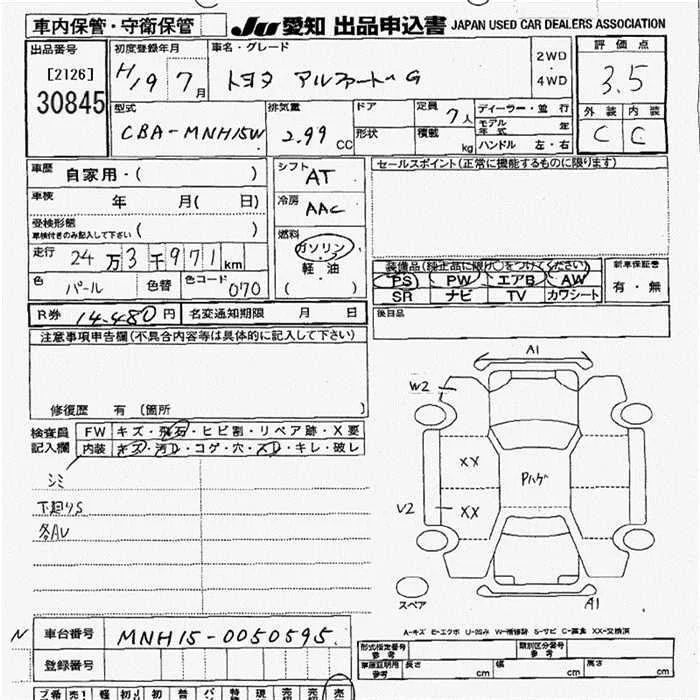 車内保管・守衛保管
JU 愛知 出品申込書 JAPAN USED CAR DEALERS ASSOCIATION
出品番号
[2126]
30845
初度登録年月
H19 7月
車名・グレード
トヨタ アルファード G
2WD
・
4WD
評価点
3.5
外装 内装
C C
型式
CBA-MNH15W
排気量
2.99 CC
ドア
形状
定員 7人
積載 kg
ディーラー・並行
モデル年式 年
ハンドル 左・右
車歴 自家用・( )
車検 年 月( 日)
受検形態
車検付きのみ記入して下さい
走行 24万3千971km
色 パール 色替 色コード 070
シフト AT
冷房 AAC
燃料
ガソリン
軽・油
( )
セールスポイント(正常に機能するものに限ります)
装備品(純正品に限り○をつけてください)
PS PW エアB AW
SR ナビ TV カワシート
新車保証書
有・無
後日品
R券 14-480円 名変通知期限 月 日
注意事項申告欄(不具合内容等は具体的に記入して下さい)
修復歴 有 [箇所 ]
検査員記入欄
FW キズ・飛石・ヒビ割・リペア跡・X要
内装 キズ・汚レ・コゲ・穴・スレ・キレ・破レ
シミ
下廻りS
各AV
A1
W2
XX
Pハゲ
V2
XX
スペア
A1
A-キズ E-エクボ U-凹み W-補修跡 S-サビ C-腐食 XX-交換済
N 車台番号 MNH15-0050595
登録番号
型式指定番号
参考
類別区分番号
参考
車庫証明用
参考
長さ cm 幅 cm 高さ cm